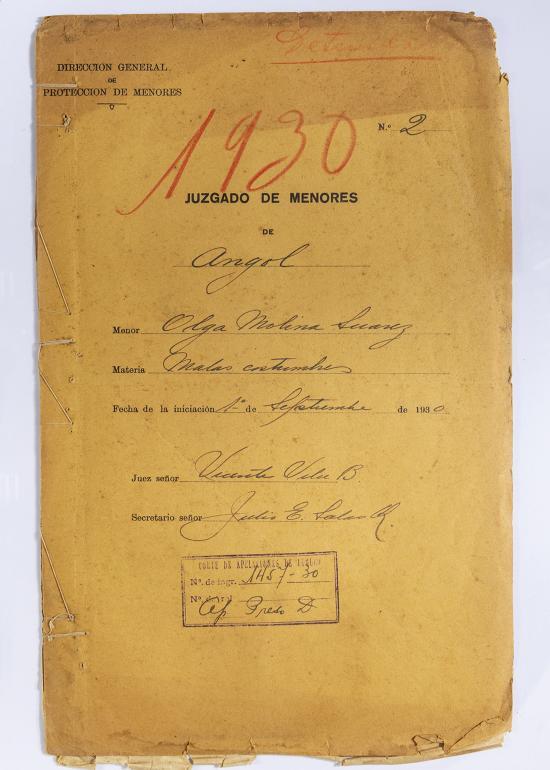 DIRECCION GENERAL
DE
PROTECCION DE MENORES
1930
N.º 2
JUZGADO DE MENORES
DE
Angol
Menor Olga Molina Suarez
Materia Malas costumbres
Fecha de la iniciación 1º de Septiembre de 1930
Juez señor Vicente B.
Secretario señor Julio E. Salas R.
CORTE DE APELACIONES DE
Nº. de ingr. 1457-30
Nº. del rol
Preso D